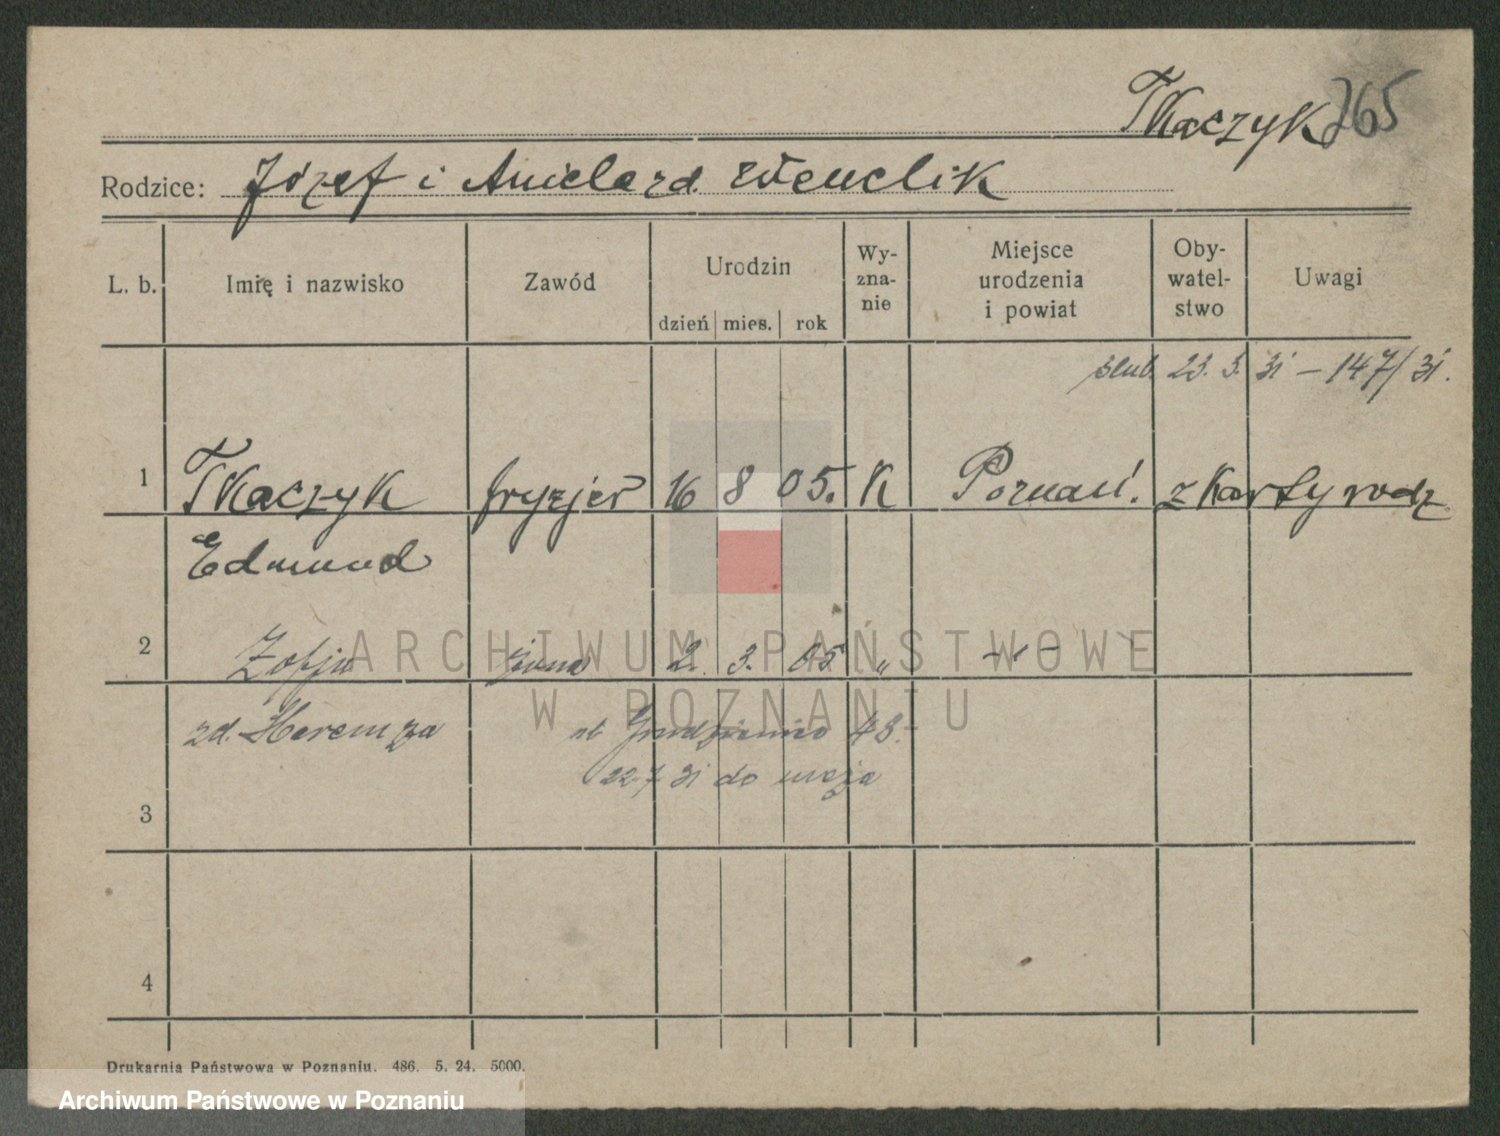 Tkaczyk 265
Rodzice: Józef i Aniela zd. Wenclik
L. b. Imię i nazwisko Zawód Urodzin dzień mies. rok Wyznanie Miejsce urodzenia i powiat Obywatelstwo Uwagi
ślub. 23. 5. 31 – 147/31.
1 Tkaczyk fryzjer 16 8 05. K Poznań. z karty rodz.
Edmund
2 Zofja żona 2. 3. 05. „ – „ –
zd. Haremza 43.
22.7 31 do męża
3
4
Drukarnia Państwowa w Poznaniu. 486. 5. 24. 5000.
ARCHIWUM PAŃSTWOWE
W POZNANIU
Archiwum Państwowe w Poznaniu